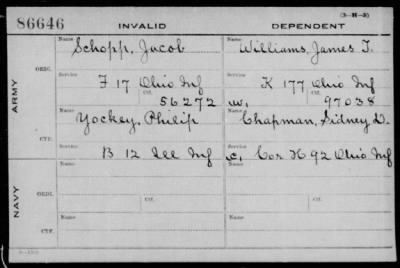 86646 INVALID DEPENDENT (3-H-3)
ARMY
ORIG.
Name Schopp, Jacob
Name Williams, James T.
Service F 17 Ohio Inf
Service K 177 Ohio Inf
Ctf. 56272
W, Ctf. 97038
CTF.
Name Yockey, Philip
Name Chapman, Sidney D.
Service B 12 Ill Inf
Service C, Cor H 92 Ohio Inf
NAVY
ORIG.
Name
Name
Service Ctf.
Service Ctf.
CTF.
Name
Name